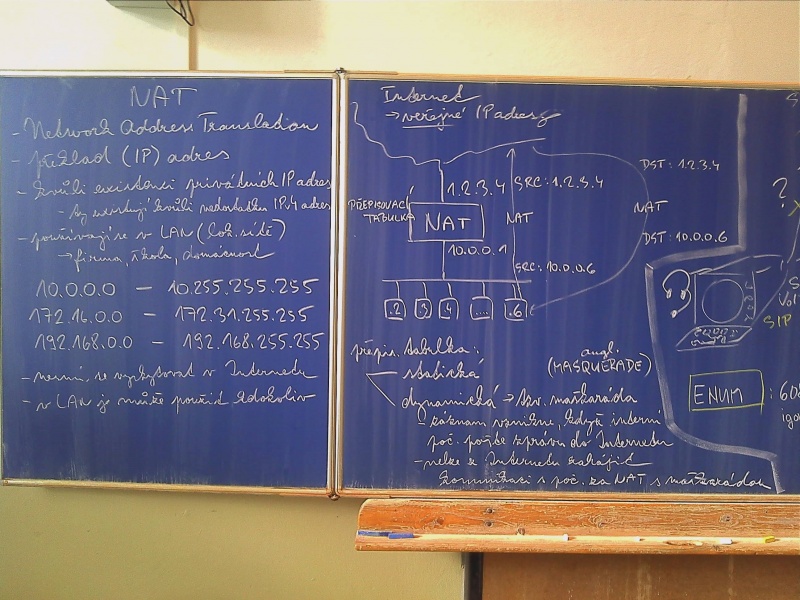 NAT
- Network Address Translation
- překlad (IP) adres
- kvůli existenci privátních IP adres
- ty existují kvůli nedostatku IPv4 adres
- používají se v LAN (lok. sítě)
→ firma, škola, domácnost
10.0.0.0 – 10.255.255.255
172.16.0.0 – 172.31.255.255
192.168.0.0 – 192.168.255.255
- nesmí se vyskytovat v Internetu
- v LAN je může použít kdokoliv
Internet
→ veřejné IP adresy
1.2.3.4
SRC: 1.2.3.4
DST: 1.2.3.4
PŘEPISOVACÍ
TABULKA
NAT
NAT
NAT
10.0.0.1
SRC: 10.0.0.6
DST: 10.0.0.6
.2
.3
.4
....
.6
přepis. tabulka:
statická
angl.
(MASQUERADE)
dynamická → tzv. maškaráda
- záznam vznikne, když interní
poč. pošle zprávu do Internetu
- nelze z Internetu zahájit
komunikaci s poč. za NAT s maškarádou
?
SIP
ENUM : 608
igo